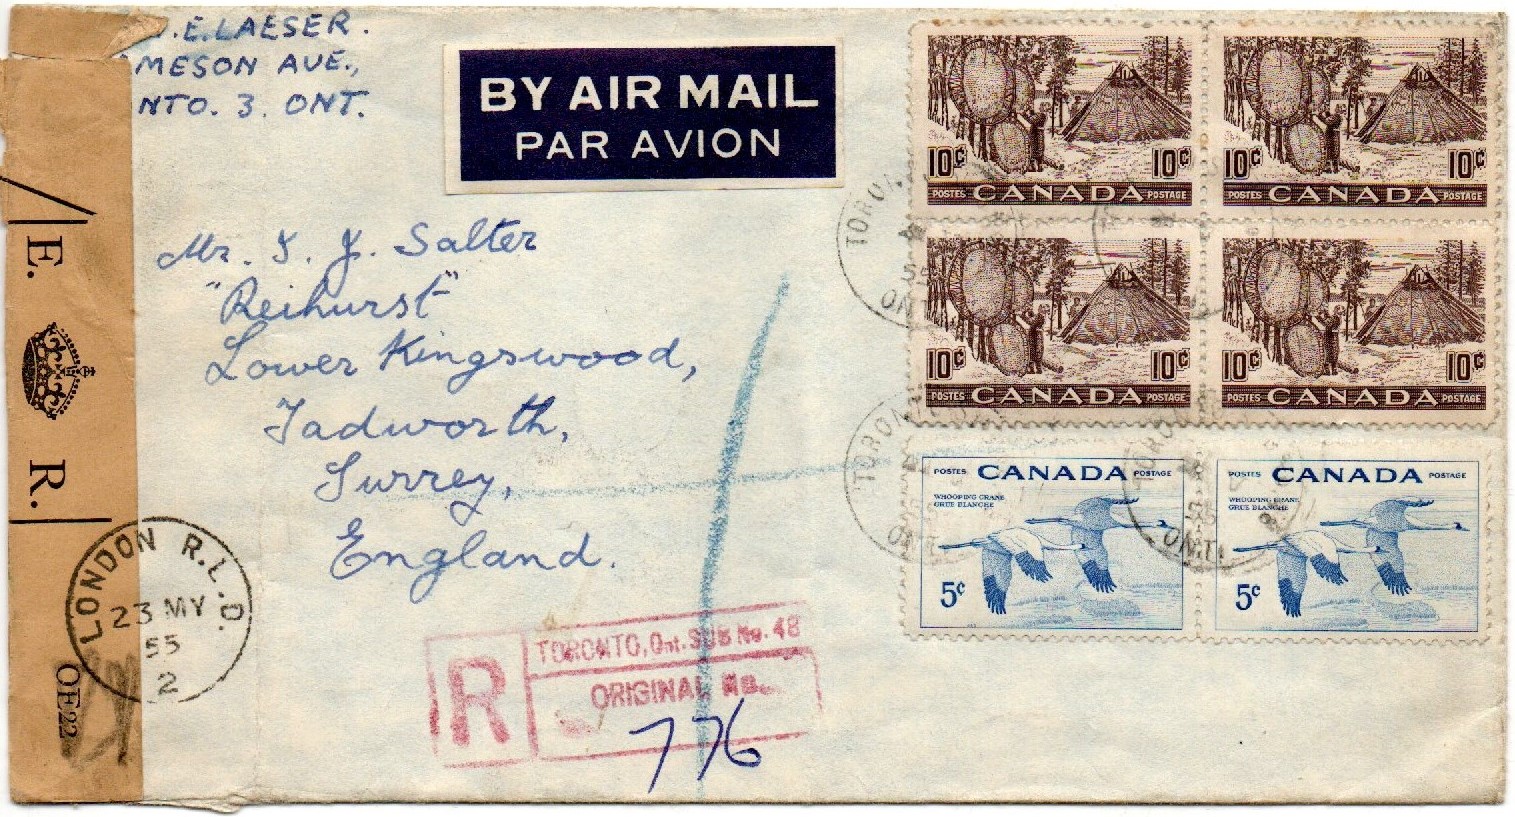 .E. LAESER.
MESON AVE.,
NTO. 3. ONT.
BY AIR MAIL
PAR AVION
Mr. J. J. Salter
"Reihurst"
Lower Kingswood,
Tadworth,
Surrey,
England.
E. R.
OE22
LONDON R.L.D.
23 MY
55
2
R
TORONTO, Ont. SUB No. 48
ORIGINAL No.
776
10¢ 10¢
POSTES CANADA POSTAGE
10¢ 10¢
POSTES CANADA POSTAGE
10¢ 10¢
POSTES CANADA POSTAGE
10¢ 10¢
POSTES CANADA POSTAGE
POSTES CANADA POSTAGE
WHOOPING CRANE
GRUE BLANCHE
5¢
POSTES CANADA POSTAGE
WHOOPING CRANE
GRUE BLANCHE
5¢